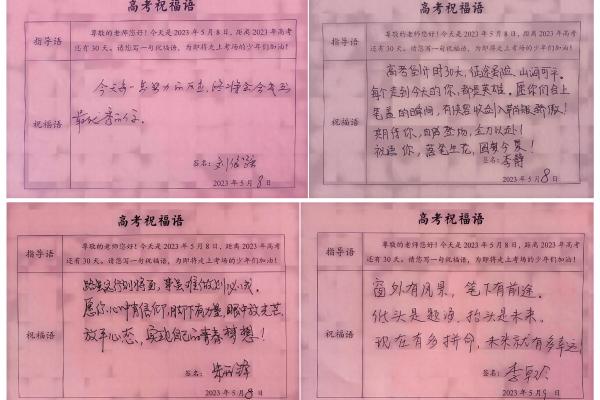 高考祝福语
指导语
尊敬的老师您好！今天是 2023 年 5 月 8 日，距离 2023 年高考
还有 30 天。请您写一句祝福语，为即将走上考场的少年们加油！
祝福语
今天每一点努力的
签名：
2023 年 5 月 8 日
高考祝福语
指导语
尊敬的老师您好！今天是 2023 年 5 月 8 日，距离 2023 年高考
还有 30 天。请您写一句祝福语，为即将走上考场的少年们加油！
祝福语
高考倒计时30天，征途虽险，山海可平。
每个走到今天的你，都是英雄。愿你们合上
笔盖的瞬间，有侠客收剑入鞘的骄傲！
期待你，向阳登场，全力以赴！
祝福你，落笔生花，圆梦今夏！
签名：李静
2023 年 5 月 8 日
高考祝福语
指导语
尊敬的老师您好！今天是 2023 年 5 月 8 日，距离 2023 年高考
还有 30 天。请您写一句祝福语，为即将走上考场的少年们加油！
祝福语
路虽远行则将至，事虽难做则必成。
愿你心中有信仰，脚下有力量，眼中放光芒，
放平心态，实现自己的青春梦想！
签名：
2023 年 5 月 8 日
高考祝福语
指导语
尊敬的老师您好！今天是 2023 年 5 月 8 日，距离 2023 年高考
还有 30 天。请您写一句祝福语，为即将走上考场的少年们加油！
祝福语
窗外有风景，笔下有前途。
低头是题海，抬头是未来。
现在有多拼命，未来就有多幸运！
签名：
2023 年 5 月 日